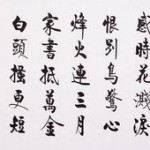 感時花濺淚
恨別鳥驚心
烽火連三月
家書抵萬金
白頭搔更短